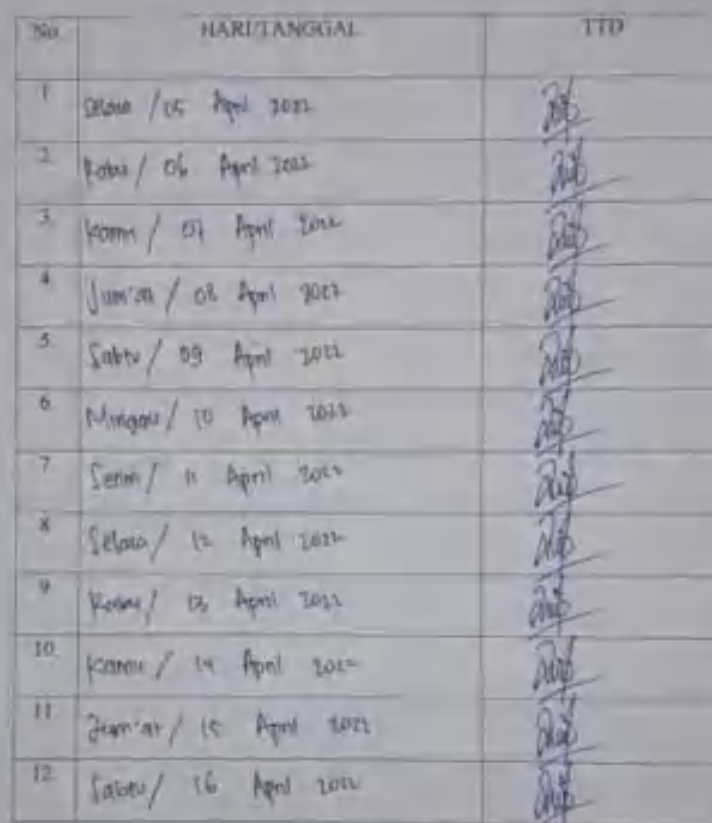 No HARI/TANGGAL TTD
1 Selasa / 05 April 2022
2. Rabu / 06 April 2022
3. Kamis / 07 April 2022
4 Jum'at / 08 April 2022
5. Sabtu / 09 April 2022
6 Minggu / 10 April 2022
7 Senin / 11 April 2022
8 Selasa / 12 April 2022
9 Rabu / 13 April 2022
10. Kamis / 14 April 2022
11 Jum'at / 15 April 2022
12. Sabtu / 16 April 2022